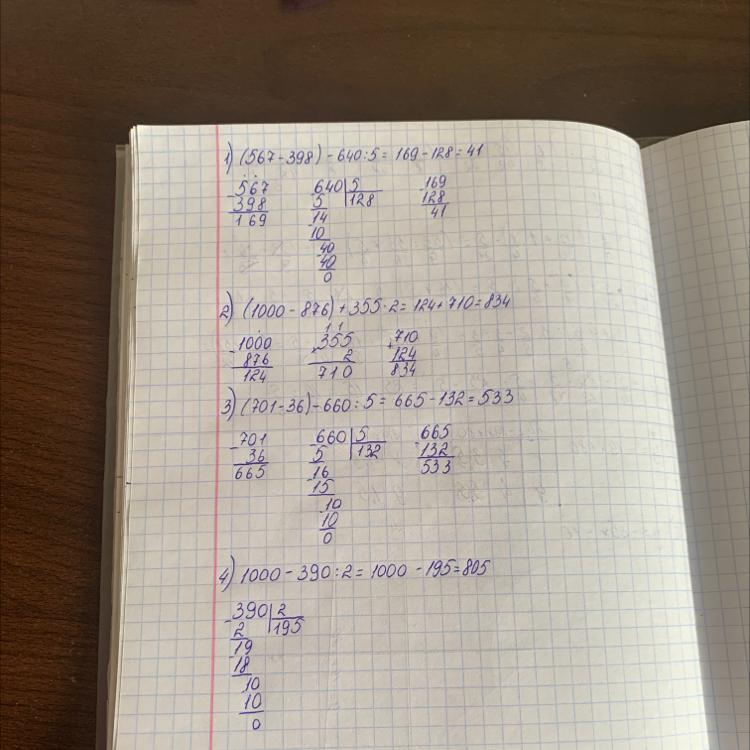 1) (567-398)-640:5=169-128=41
-567 -640|5 -169
398 5 128 128
169 -14 41
10
-40
40
0
2) (1000-876)+355·2=124+710=834
1 1
-1000 ×355 +710
876 2 124
124 710 834
3) (701-36)-660:5=665-132=533
-701 -660|5 -665
36 5 132 132
665 -16 533
15
10
10
0
4) 1000-390:2=1000-195=805
-390|2
2 195
-19
18
10
10
0